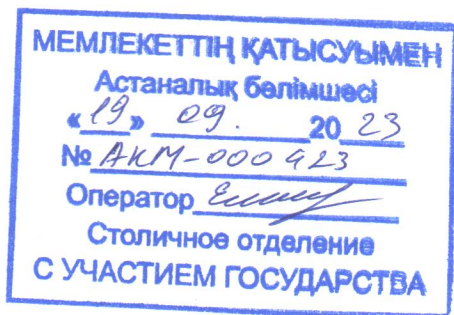 МЕМЛЕКЕТТІҢ ҚАТЫСУЫМЕН
Астаналық бөлімшесі
«19» 09. 20 23
№ АКМ-000423
Оператор
Столичное отделение
С УЧАСТИЕМ ГОСУДАРСТВА